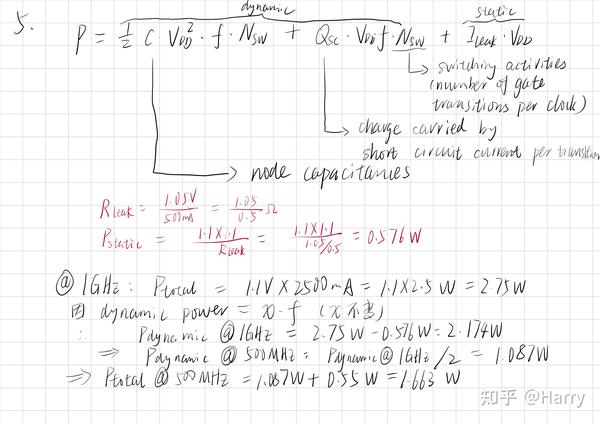 dynamic static
5. P = 1/2 C·V_DD²·f·N_SW + Q_SC·V_DD·f·N_SW + I_leak·V_DD
switching activities
(number of gate
transitions per clock)
charge carried by
short circuit current per transition
node capacitances
R_leak = 1.05V/500mA = 1.05/0.5 Ω
P_static = 1.1×1.1/R_leak = 1.1×1.1/1.05/0.5 = 0.576W
@ 1GHz: P_total = 1.1V × 2500mA = 1.1×2.5 W = 2.75W
因 dynamic power = x·f (x不变)
∴ P_dynamic @ 1GHz = 2.75W - 0.576W = 2.174W
⇒ P_dynamic @ 500MHz = P_dynamic @ 1GHz/2 = 1.087W
⇒ P_total @ 500MHz = 1.087W + 0.55W = 1.663 W
知乎 @Harry